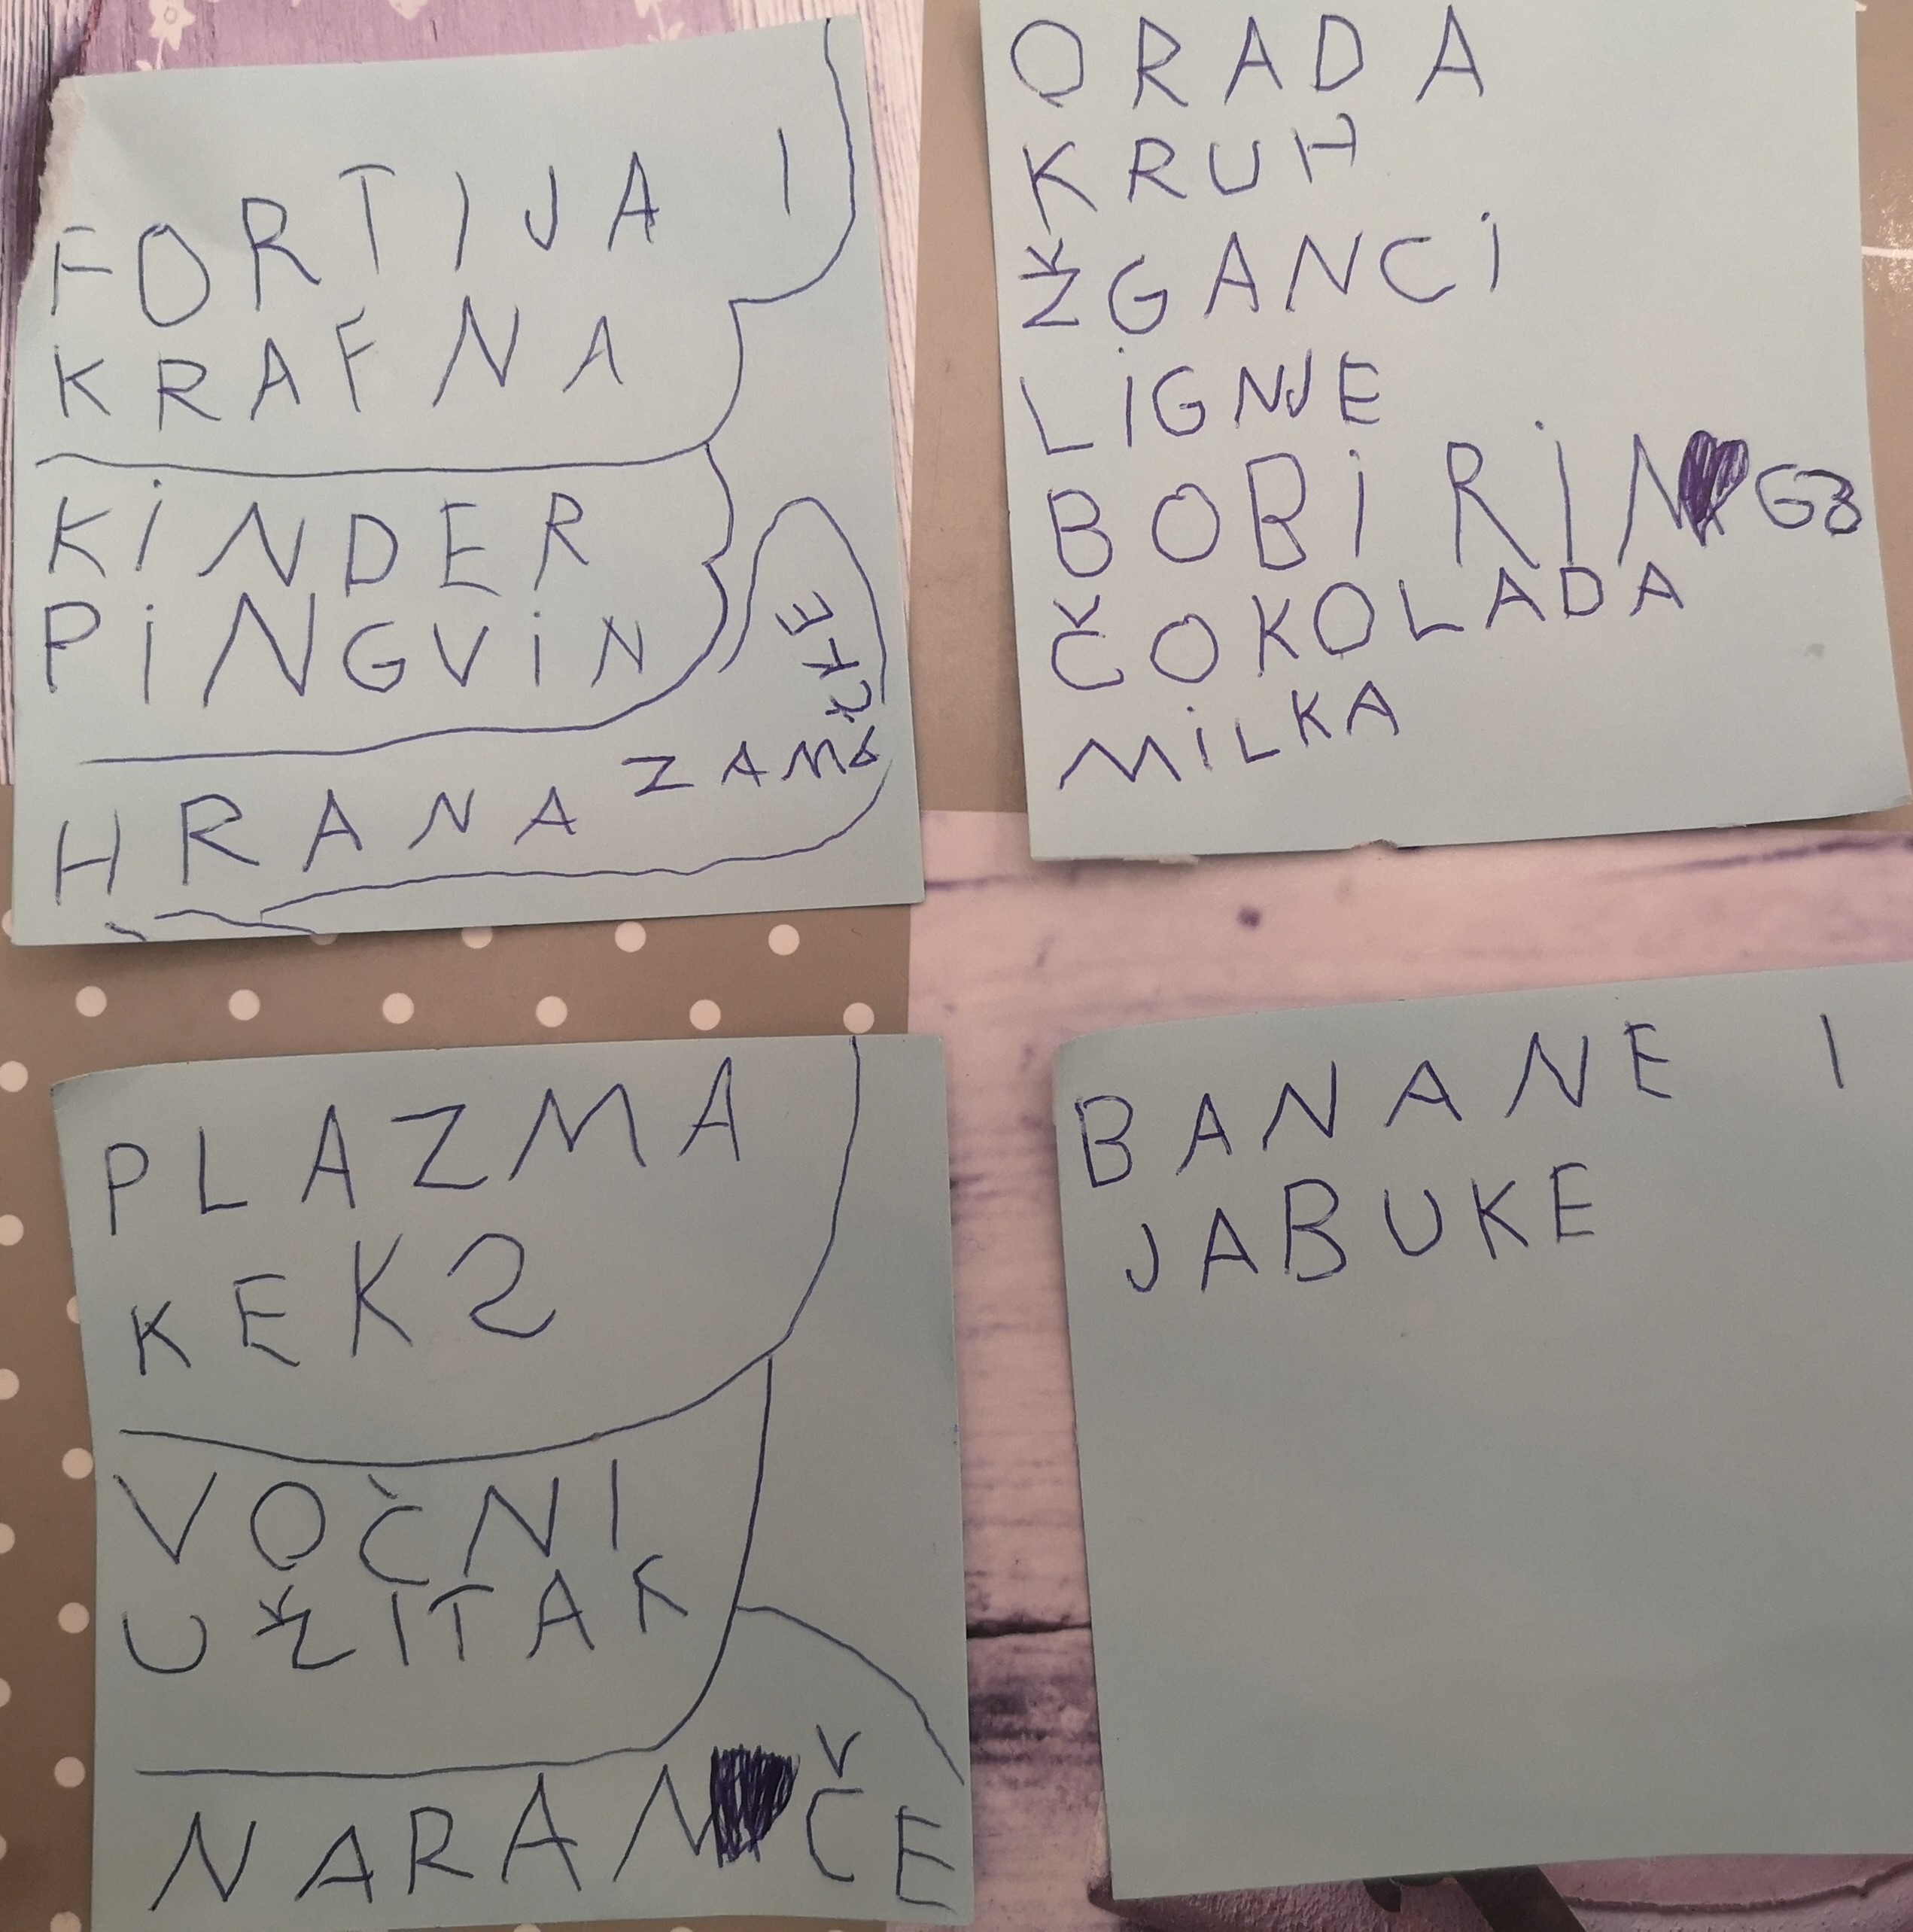 FORTIJA I
KRAFNA
KINDER
PINGVIN
HRANA ZA MAČKE
ORADA
KRUH
ŽGANCI
LIGNJE
BOBI RINGS
ČOKOLADA
MILKA
PLAZMA
KEKS
VOČNI
UŽITAK
NARANČE
BANANE I
JABUKE